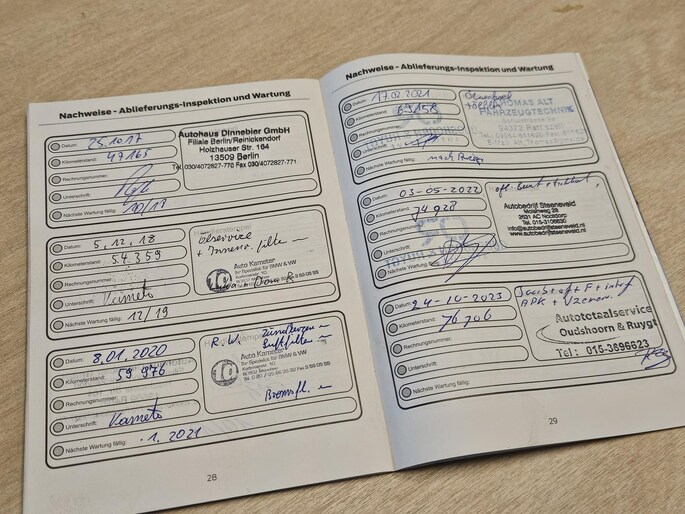 Nachweise - Ablieferungs-Inspektion und Wartung
Datum: 25.10.17
Kilometerstand: 47165
Rechnungsnummer:
Unterschrift:
Nächste Wartung fällig: 10/19
Autohaus Dinnebier GmbH
Filiale Berlin/Reinickendorf
Holzhauser Str. 164
13509 Berlin
Tel. 030/4072827-770 Fax 030/4072827-771
Datum: 5.12.18
Kilometerstand: 54.359
Rechnungsnummer:
Unterschrift:
Nächste Wartung fällig: 12/19
Ölservice
+ Innenr. filter
Auto Kameter
Ihr Spezialist für BMW & VW
Datum: 8.01.2020
Kilometerstand: 59 976
Rechnungsnummer:
Unterschrift:
Nächste Wartung fällig: .1.2021
R.W.
Zündkerzen
Luftfilter
Auto Kameter
Ihr Spezialist für BMW & VW
Bremsfl.
28
Nachweise - Ablieferungs-Inspektion und Wartung
Datum: 17.02.2021
Kilometerstand: 69158
Rechnungsnummer:
Nächste Wartung fällig:
THOMAS ALT
FAHRZEUGTECHNIK
Datum: 03-05-2022
Kilometerstand: 74928
Rechnungsnummer:
Unterschrift:
Nächste Wartung fällig:
Autobedrijf Steeneveld
2631 AC Nootdorp
Tel. 015-3106630
info@autobedrijfsteeneveld.nl
www.autobedrijfsteeneveld.nl
Datum: 24-10-2023
Kilometerstand: 76706
Rechnungsnummer:
Unterschrift:
Nächste Wartung fällig:
Autototaalservice
Oudshoorn & Ruygt
Tel: 015-3696623
29